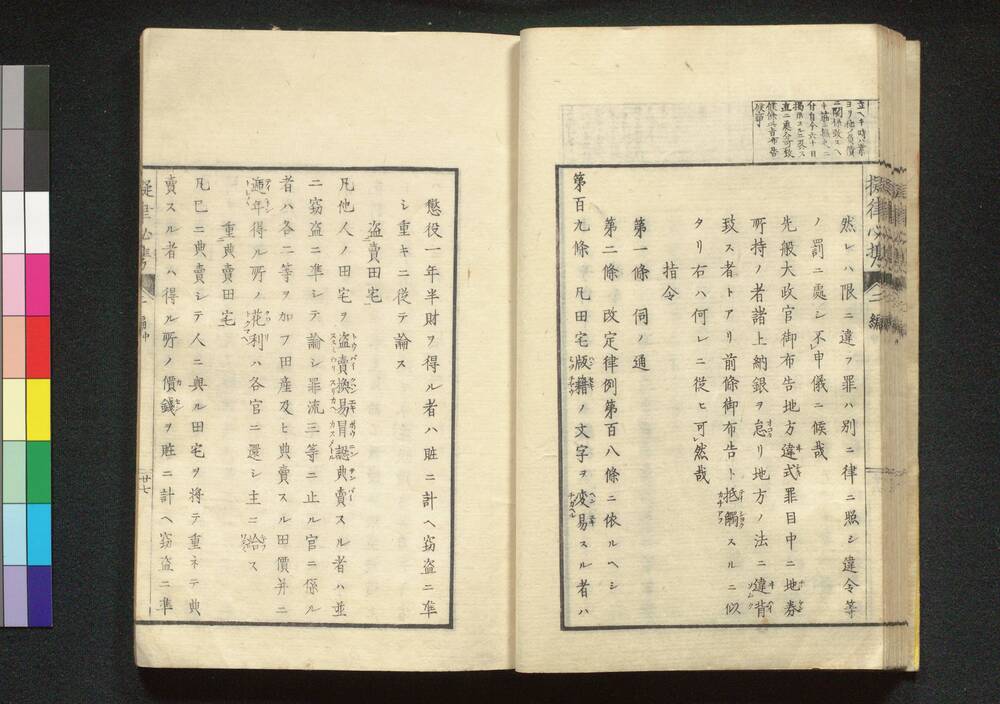 然レハ限ニ違フ罪ハ別ニ律ニ照シ違令等
ノ罰ニ處シ不申儀ニ候哉
先般大政官御布告地方違式罪目中ニ地券
所持ノ者諸上納銀ヲ怠リ地方ノ法ニ違背
致ス者トアリ前條御布告ト抵觸スルニ似
タリ右ハ何レニ従ヒ可然哉
指令
第一條 伺ノ通
第二條 改定律例第百八條ニ依ルヘシ
第百九條 凡田宅版籍ノ文字ヲ変易スル者ハ
懲役一年半財ヲ得ル者ハ贓ニ計ヘ窃盗ニ準
シ重キニ従テ論ス
盗賣田宅
凡他人ノ田宅ヲ盗賣換易冒認典賣スル者ハ並
ニ窃盗ニ準シテ論シ罪流三等ニ止ル官ニ係ル
者ハ各二等ヲ加フ田産及ヒ典賣スル田價并ニ
逓年得ル所ノ花利ハ各官ニ還シ主ニ給ス
重典賣田宅
凡已ニ典賣シテ人ニ與ル田宅ヲ将テ重ネテ典
賣スル者ハ得ル所ノ價錢ヲ贓ニ計ヘ窃盗ニ準
廿七